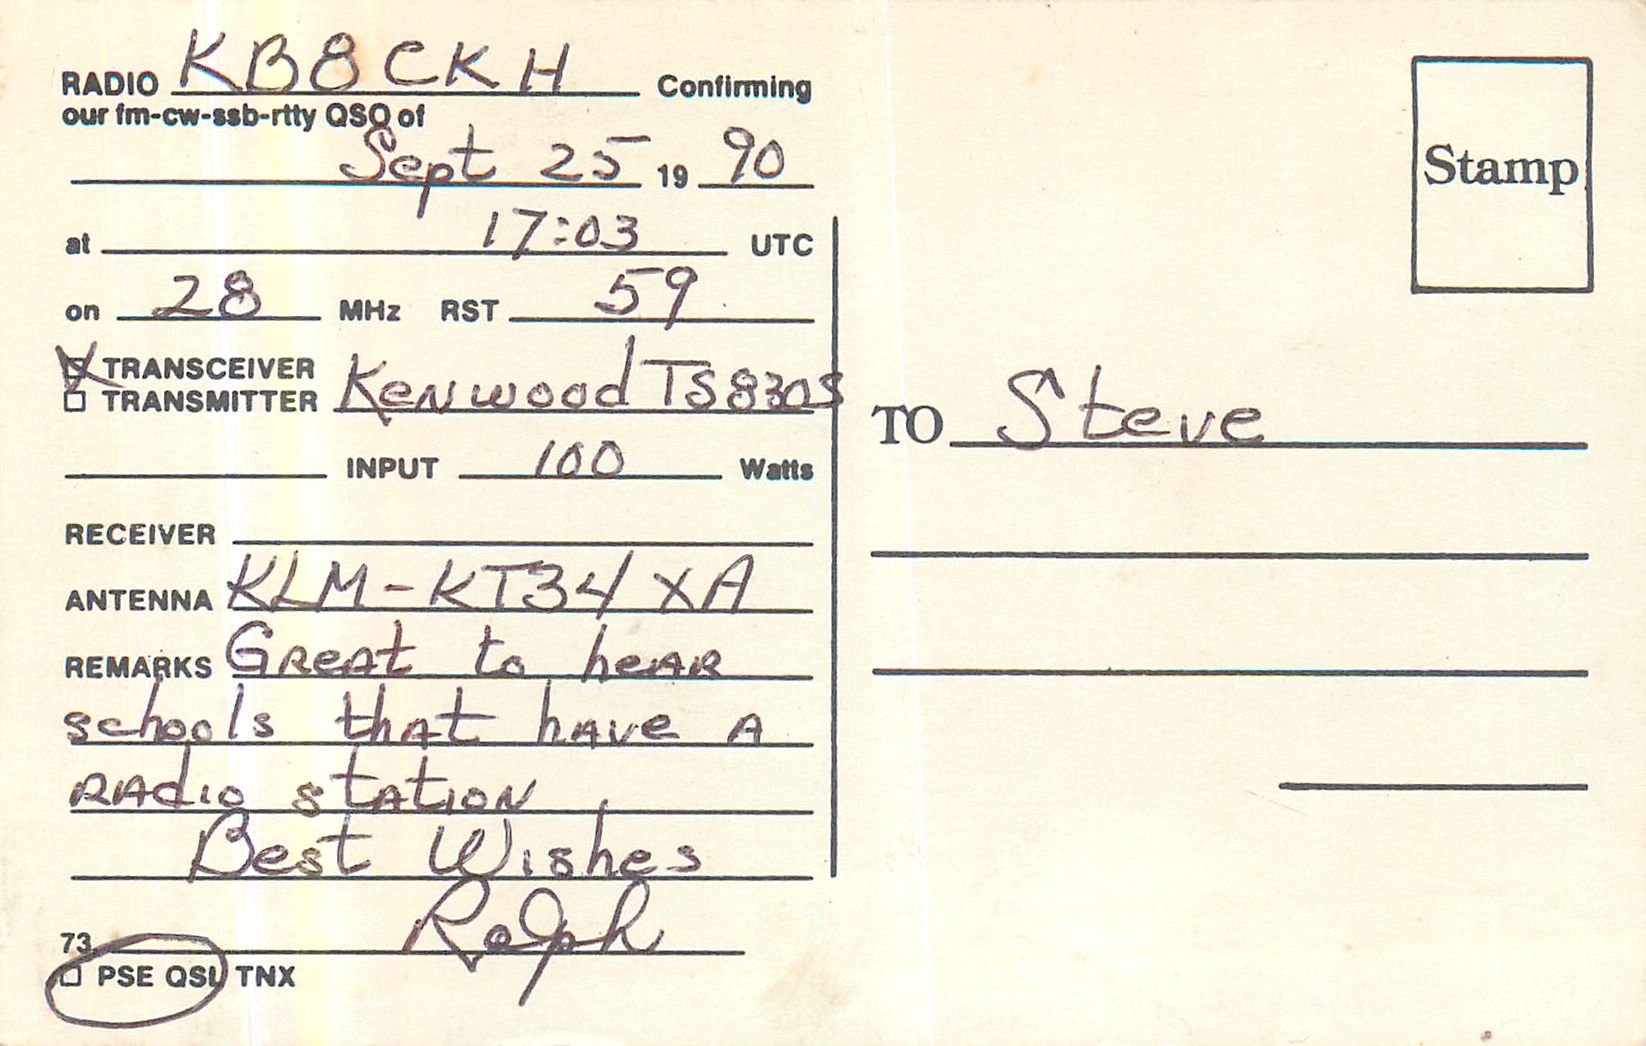 RADIO KB8CKH Confirming
our fm-cw-ssb-rtty QSO of
Sept 25 19 90
at 17:03 UTC
on 28 MHz RST 59
TRANSCEIVER
TRANSMITTER Kenwood TS830S
INPUT 100 Watts
RECEIVER
ANTENNA KLM-KT34XA
REMARKS Great to hear
schools that have a
radio station
Best Wishes
73 Ralph
PSE QSL TNX
Stamp
TO Steve